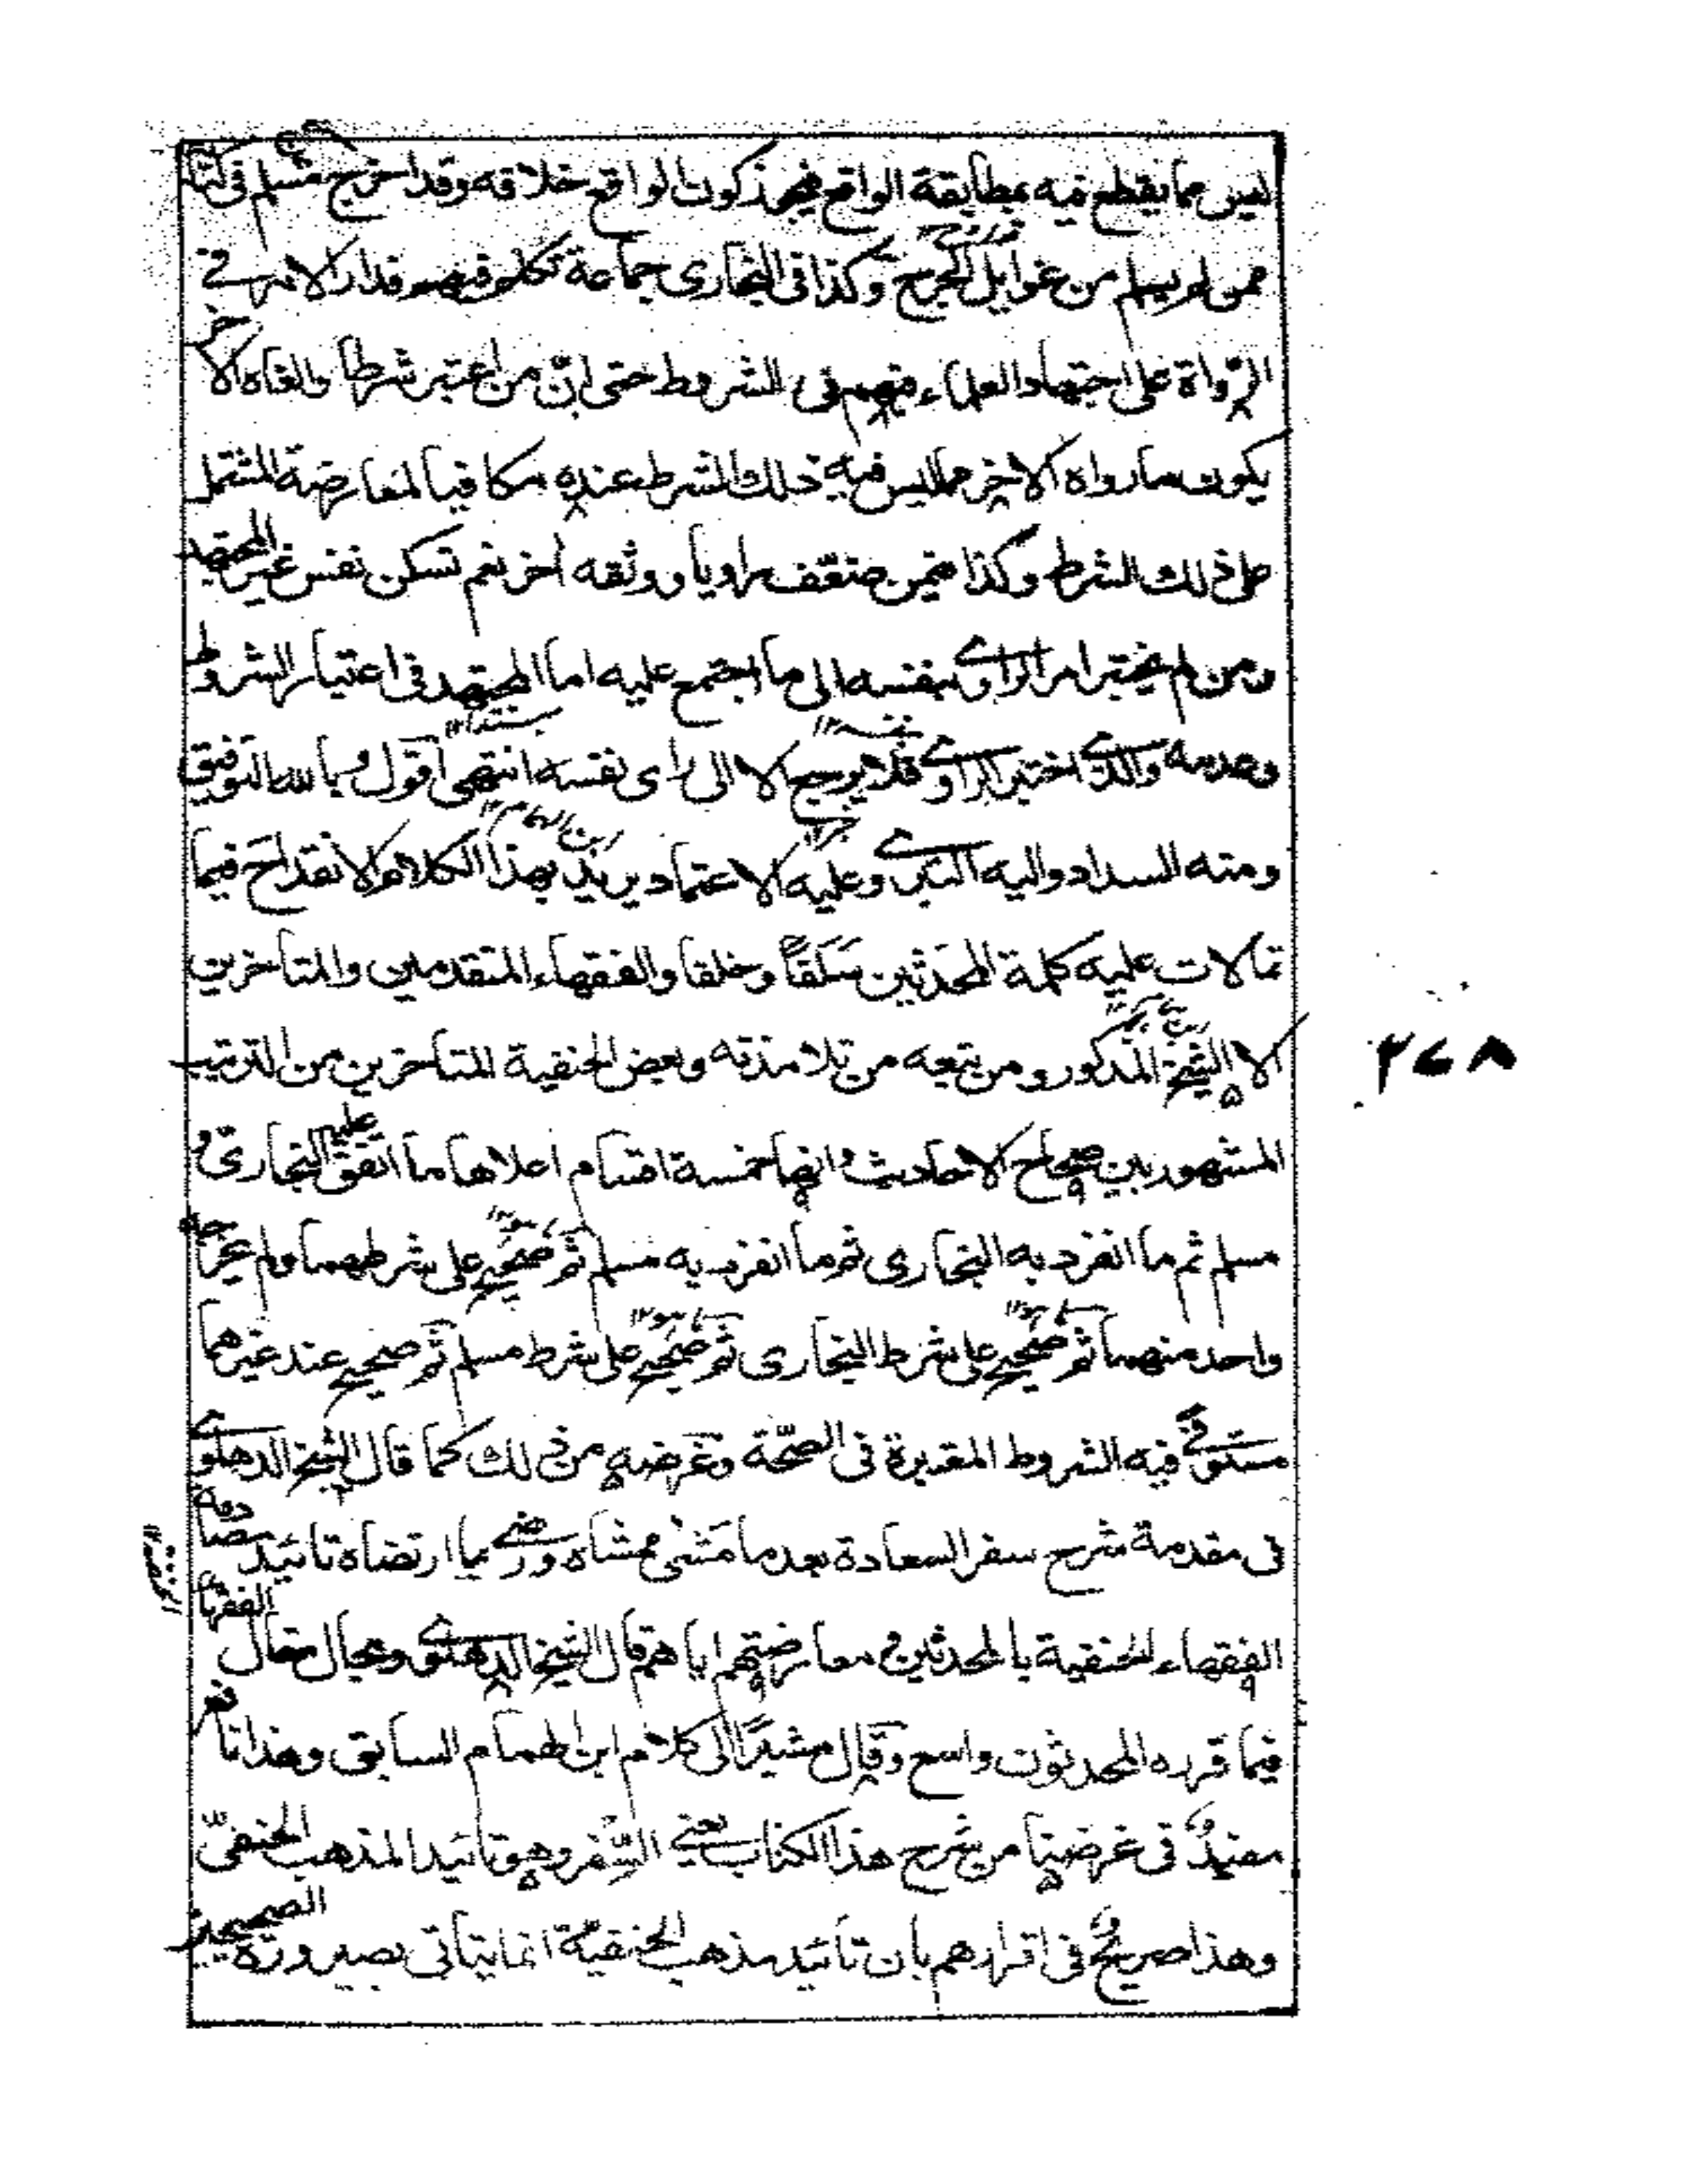 ليس مما يقطع فيه بمطابقة الواقع فيجوز كون الواقع خلافه وقد اخرج مسلم في كتابه
ممن لم يسلم من غوايل الجرح وكذا في البخاري جماعة تكلم فيهم فدار الامر في
الرواة على اجتهاد العلماء فيهم في الشروط حتى ان من اعتبر شرطا والغاه الاخر
يكون ما رواه الاخر مما ليس فيه ذلك الشرط عنده مكافيا لمعارضة المشتمل
على ذلك الشرط وكذا فيمن ضعّف راويا ووثقه آخر نعم تسكن نفس غير المجتهد
ومن لم يختبر امر الراوي بنفسه الى ما اجتمع عليه اما المجتهد في اعتبار الشروط
وعدمه والذي اختبر الراوي فلا يرجع الا الى راى نفسه انتهى اقول وبالله التوفيق
ومنه السداد واليه وعليه الاعتماد يريد بهذا الكلام الانقداح فيما
تمالات عليه كلمة المحدثين سلفاً وخلفا والفقهاء المتقدمين والمتاخرين
الا الشيخ المذكور ومن تبعه من تلامذته وبعض الحنفية المتاخرين من الترتيب
٢٦٨
المشهور بين صحاح الاحاديث وانها خمسة اقسام اعلاها ما اتفق عليه البخاري و
مسلم ثم ما انفرد به البخاري ثم ما انفرد به مسلم ثم صحيح على شرطهما ولم يخرجه
واحد منهما ثم صحيح على شرط البخاري ثم صحيح على شرط مسلم ثم صحيح عند غيرهما
مستوفى فيه الشروط المعتبرة في الصحّة وغرضه من ذلك كما قال الشيخ الدهلوي
في مقدمة شرح سفر السعادة بعد ما مشى ممشاه ورضي بما ارتضاه تائيد
الفقهاء الحنفية بالمحدثين في معارضتهم اياهم قال الشيخ الدهلوي ومجال مقال
فيما قرره المحدثون واسع وقال مشيرًا الى كلام ابن الهمام السابق وهذا نافع
مفيدٌ في غرضنا من شرح هذا الكتاب يعني السّفر وهو تائيد المذهب الحنفيّ
وهذا صريحٌ في اقرارهم بان تأئيد مذهب الحنفيّة انما يتأتى بصيرورة الصحيحين